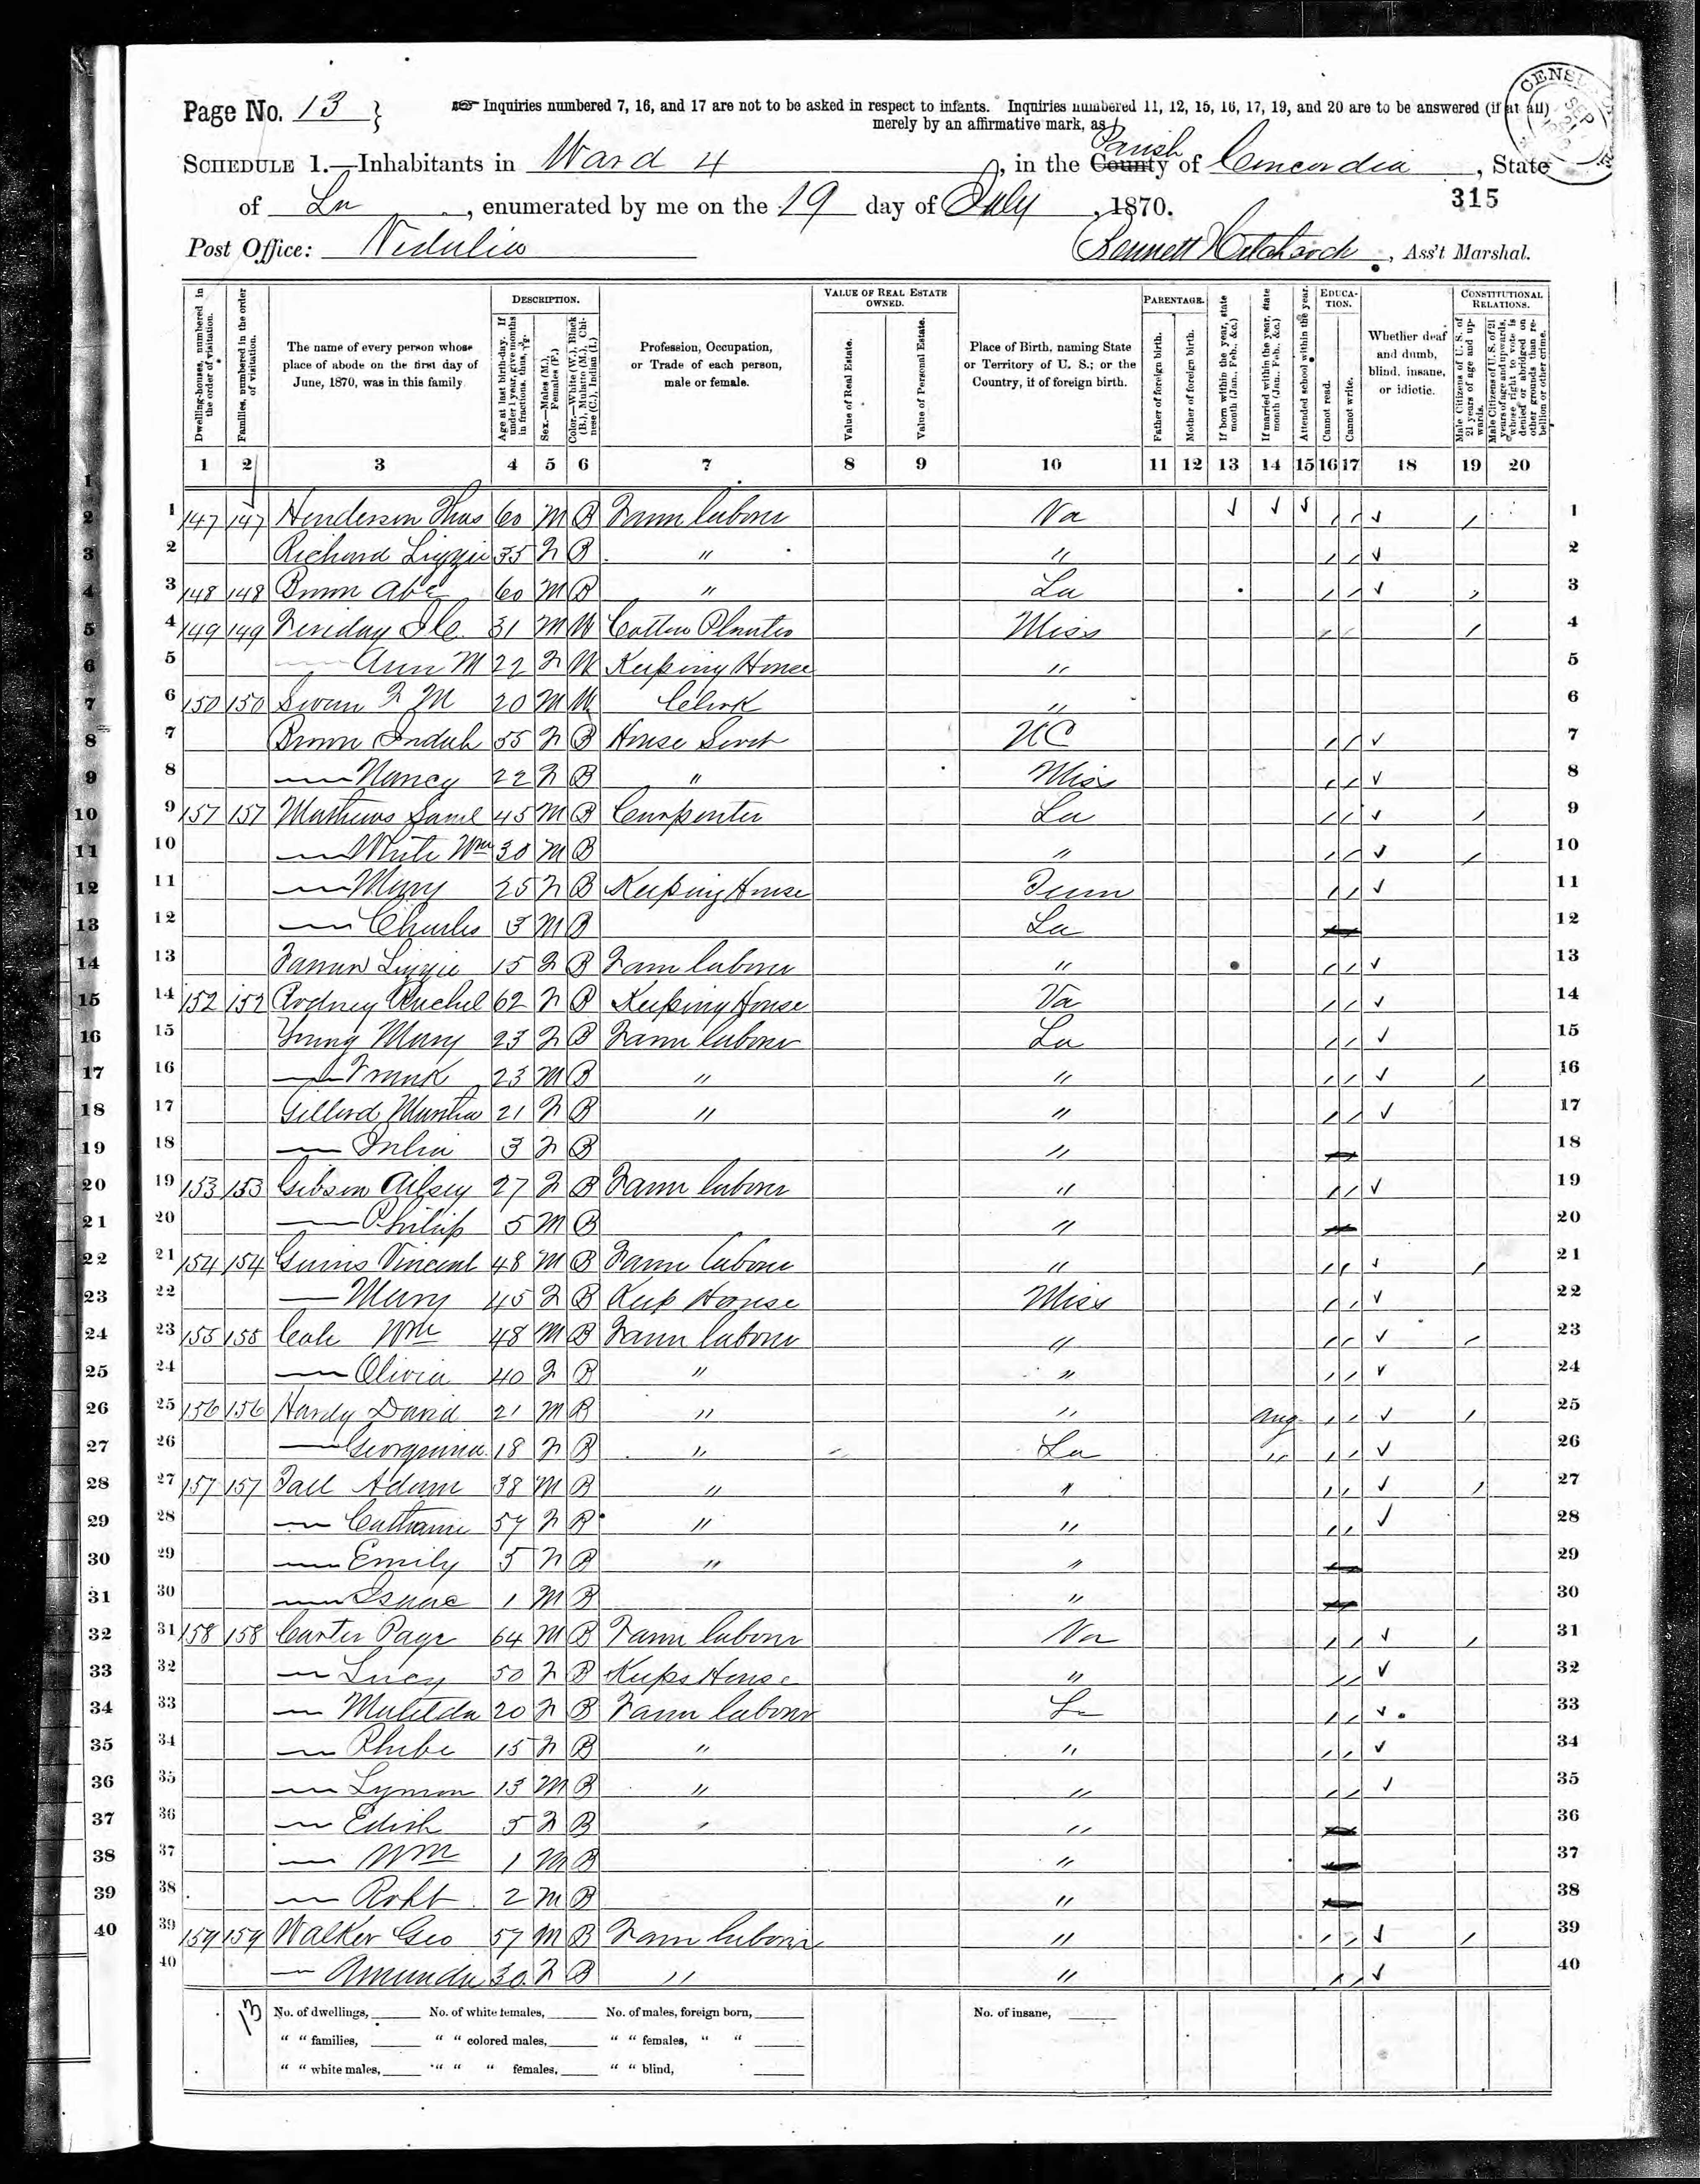 Page No. 13 } Inquiries numbered 7, 16, and 17 are not to be asked in respect to infants. Inquiries numbered 11, 12, 15, 16, 17, 19, and 20 are to be answered (if at all)
merely by an affirmative mark, as /
SCHEDULE 1.—Inhabitants in Ward 4, in the County Parish of Concordia, State
of La, enumerated by me on the 19 day of July, 1870.
315
Post Office: Vidalia
Bennett Hitchcock, Ass't Marshal.
Dwelling-houses, numbered in the order of visitation.
Families, numbered in the order of visitation.
The name of every person whose place of abode on the first day of June, 1870, was in this family.
DESCRIPTION.
Age at last birth-day. If under 1 year, give months in fractions, thus, 3/12.
Sex.—Males (M.), Females (F.)
Color.—White (W.), Black (B.), Mulatto (M.), Chinese (C.), Indian (I.)
Profession, Occupation, or Trade of each person, male or female.
VALUE OF REAL ESTATE OWNED.
Value of Real Estate.
Value of Personal Estate.
Place of Birth, naming State or Territory of U. S.; or the Country, if of foreign birth.
PARENTAGE.
Father of foreign birth.
Mother of foreign birth.
If born within the year, state month (Jan., Feb., &c.)
If married within the year, state month (Jan., Feb., &c.)
Attended school within the year.
EDUCATION.
Cannot read.
Cannot write.
Whether deaf and dumb, blind, insane, or idiotic.
CONSTITUTIONAL RELATIONS.
Male Citizens of U. S. of 21 years of age and upwards.
Male Citizens of U. S. of 21 years of age and upwards, whose right to vote is denied or abridged on other grounds than rebellion or other crime.
1 2 3 4 5 6 7 8 9 10 11 12 13 14 15 16 17 18 19 20
1 147 147 Henderson Thos 60 M B Farm laborer Va 1
2 Richard Lizzie 35 F B " " 2
3 148 148 Brown Abe 60 M B " La 3
4 149 149 Feriday J C 31 M W Cotton Planter Miss 4
5 — Ann M 22 F W Keeping House " 5
6 150 150 Swan F M 20 M W Clerk " 6
7 Brown Judah 55 F B House Servt NC 7
8 — Nancy 22 F B " Miss 8
9 151 151 Mathews Saml 45 M B Carpenter La 9
10 — White Wm 30 M B " 10
11 — Mary 25 F B Keeping House Tenn 11
12 — Charles 3 M B La 12
13 Lizzie 15 F B Farm laborer " 13
14 152 152 Rodney Rachel 62 F B Keeping House Va 14
15 Young Mary 23 F B Farm laborer La 15
16 — Frank 23 M B " " 16
17 Martha 21 F B " " 17
18 — Julia 3 F B " 18
19 153 153 Gibson Ailsey 27 F B Farm laborer " 19
20 — Philip 5 M B " 20
21 154 154 Vincent 48 M B Farm laborer " 21
22 — Mary 45 F B Keep House Miss 22
23 155 155 Cole Wm 48 M B Farm laborer " 23
24 — Olivia 40 F B " " 24
25 156 156 Hardy David 21 M B " " Aug 25
26 — Georgianna 18 F B " La " 26
27 157 157 Adam 38 M B " " 27
28 — Catharine 57 F B " " 28
29 — Emily 5 F B " " 29
30 — Isaac 1 M B " 30
31 158 158 Carter Page 64 M B Farm laborer Va 31
32 — Lucy 50 F B Keeps House " 32
33 — Matilda 20 F B Farm laborer La 33
34 — Phebe 15 F B " " 34
35 — Lymon 13 M B " " 35
36 — Edish 5 F B " " 36
37 — Wm 1 M B " 37
38 — Robt 2 M B " 38
39 159 159 Walker Geo 57 M B Farm laborer " 39
40 — Amanda 30 F B " " 40
13
No. of dwellings, No. of white females, No. of males, foreign born, No. of insane,
" " families, " " colored males, " " females, " "
" " white males, " " " females, " " blind,